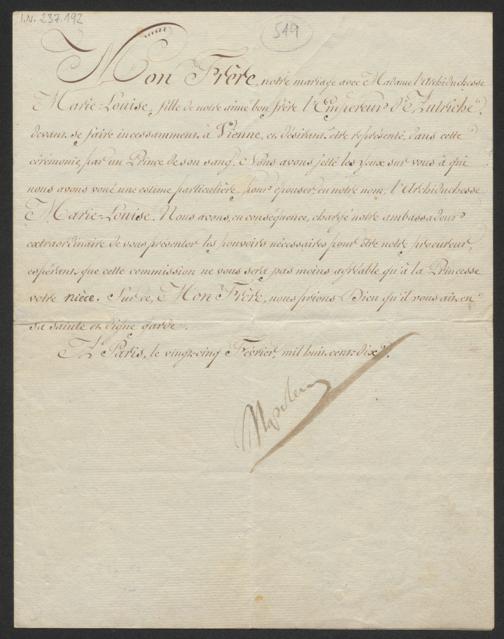 I.N. 237.192
519
Mon Frère, notre mariage avec Madame l'Archiduchesse
Marie-Louise, fille de notre aimé bon frère l'Empereur d'Autriche,
devant se faire incessamment à Vienne, et désirant être représenté dans cette
cérémonie par un Prince de son sang, Nous avons jetté les yeux sur vous à qui
nous avons voué une estime particulière pour épouser, en notre nom, l'Archiduchesse
Marie-Louise. Nous avons, en conséquence, chargé notre ambassadeur
extraordinaire de vous présenter les pouvoirs nécessaires pour être notre procureur,
espérant que cette commission ne vous sera pas moins agréable qu'à la Princesse
votre nièce. Sur ce, Mon Frère, nous prions Dieu qu'il vous ait en
sa sainte et digne garde.
A Paris, le vingt-cinq Février mil huit cent dix.
Napoleon